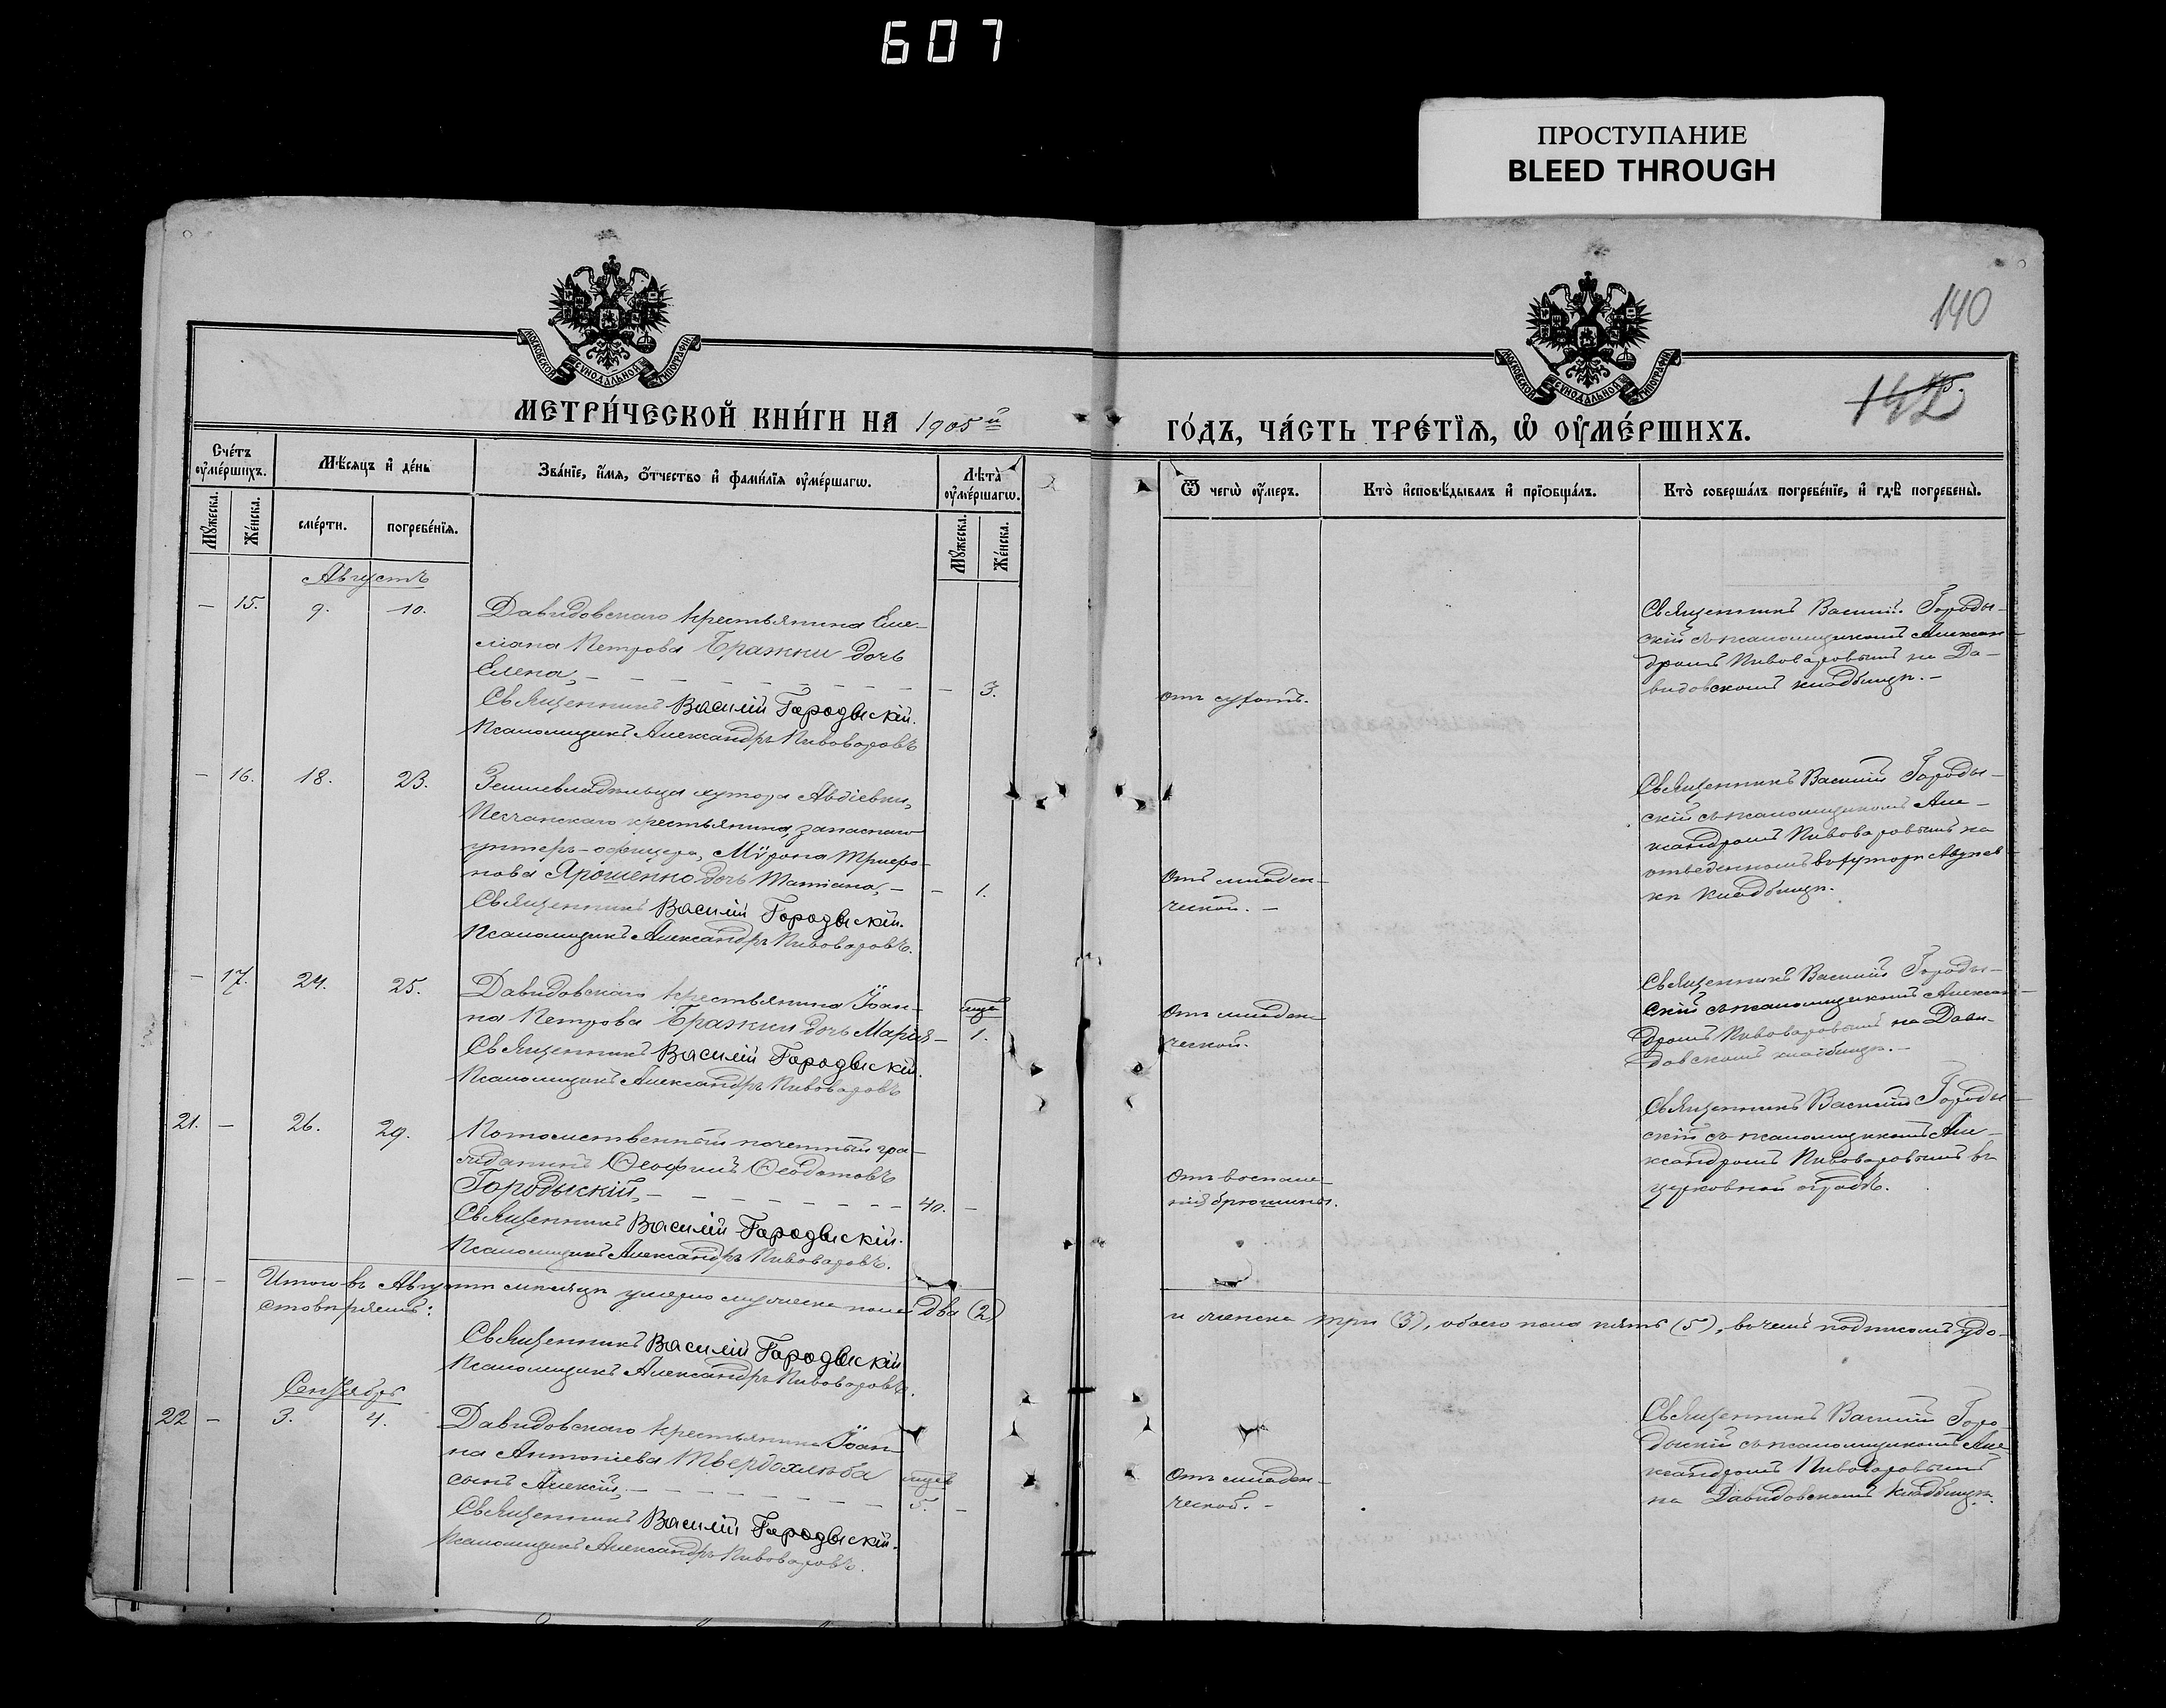 607
ПРОСТУПАНИЕ
BLEED THROUGH
140
МОСКОВСКОЙ СУНОДАЛЬНОЙ ТИПОГРАФИИ
МОСКОВСКОЙ СУНОДАЛЬНОЙ ТИПОГРАФИИ
МЕТРИ́ЧЕСКОЙ КНИ́ГИ НА 1905й
ГО́ДЪ, ЧА́СТЬ ТРЕ́ТЇЯ, Ѡ ОУМЕ́РШИХЪ.
Сче́тъ оумершихъ.
Мѣсяцъ и де́нь
Зва́нїе, и́мя, о́тчество и фами́лїя оуме́ршагѡ.
Лѣта̀ оуме́ршагѡ.
Ѿ чегѡ̀ оу́меръ.
Кто̀ исповѣ́дывалъ и прїобща́лъ.
Кто̀ соверша́лъ погребе́нїе, и гдѣ̀ погребены̀.
Мꙋ́жеска.
Же́нска.
сме́рти.
погребе́нїя.
Мꙋ́жеска.
Же́нска.
Августъ
— 15. 9. 10.
Давидовскаго крестьянина Еме-
лiана Петрова Бражки дочь
Елена, — — 3.
Священникъ Василій Городыскій.
Псаломщикъ Александръ Пивоваровъ
Отъ сухотъ.
Священникъ Василій Городы-
скій съ псаломщикомъ Алексан-
дромъ Пивоваровымъ на Да-
видовскомъ кладбищѣ. —
— 16. 18. 23.
Землевладѣльца хутора Авдіевки,
Песчанскаго крестьянина, запаснаго
унтеръ-офицера, Мѵрона Трифо-
нова Ярошенко дочь Татіана, — — 1.
Священникъ Василій Городыскій.
Псаломщикъ Александръ Пивоваровъ.
Отъ младен-
ческой. —
Священникъ Василій Городы-
скій съ псаломщикомъ Але-
ксандромъ Пивоваровымъ на
отведенномъ въ хуторѣ Авдіев-
кѣ кладбищѣ.
— 17. 24. 25.
Давидовскаго крестьянина Іоан-
на Петрова Бражки дочь Марія — 1.
Священникъ Василій Городыскій.
Псаломщикъ Александръ Пивоваровъ
Отъ младен-
ческой.
Священникъ Василій Городы-
скій съ псаломщикомъ Алексан-
дромъ Пивоваровымъ на Дави-
довскомъ кладбищѣ. —
21. — 26. 29.
Потомственный почетный гра-
жданинъ Ѳеофилъ Ѳеодотовъ
Городыскій, — 40. —
Священникъ Василій Городыскій.
Псаломщикъ Александръ Пивоваровъ.
Отъ воспале-
нія брюшины.
Священникъ Василій Городы-
скій съ псаломщикомъ Але-
ксандромъ Пивоваровымъ въ
церковной оградѣ.
— — Итого въ Августѣ мѣсяцѣ умерло мужеска пола два (2)
и женска три (3), обоего пола пять (5), въ чемъ подписомъ удо-
стовѣряемъ:
Священникъ Василій Городыскій
Псаломщикъ Александръ Пивоваровъ.
Сентябрь
22 — 3. 4.
Давидовскаго крестьянина Іоан-
на Антоніева Твердохлѣба
сынъ Алексій, — 5. —
Священникъ Василій Городыскій.
Псаломщикъ Александръ Пивоваровъ.
Отъ младен-
ческой. —
Священникъ Василій Горо-
дыскій съ псаломщикомъ Але-
ксандромъ Пивоваровымъ
на Давидовскомъ кладбищѣ.